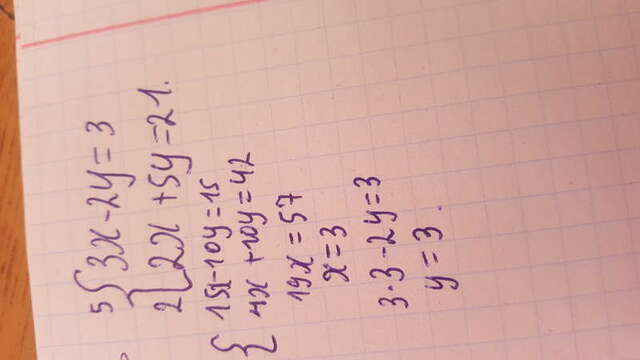 5 { 3x - 2y = 3
2 { 2x + 5y = 21.
{ 15x - 10y = 15
4x + 10y = 42
19x = 57
x = 3
3 · 3 - 2y = 3
y = 3.